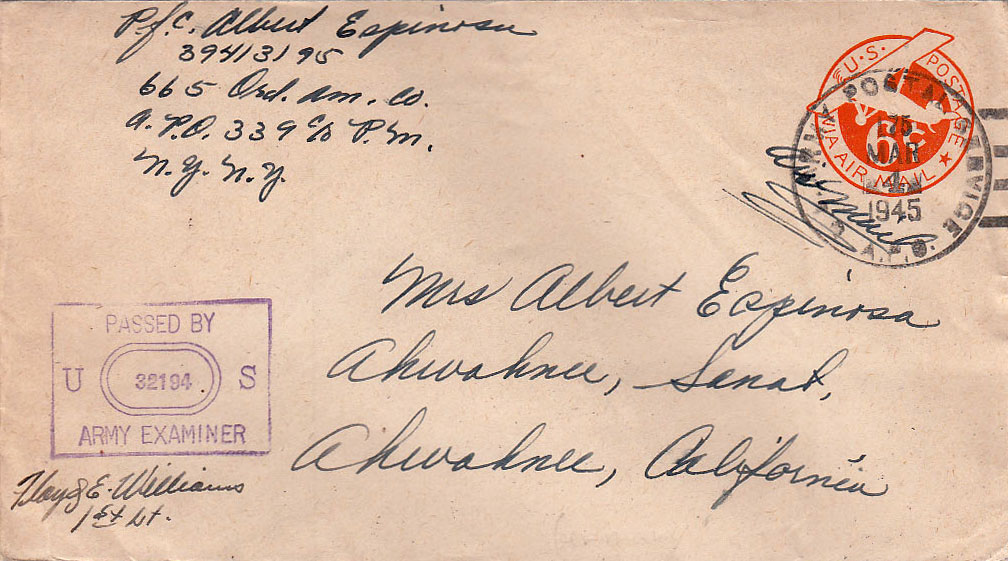 P.f.C. Albert Espinosa
39413195
665 Ord. am. Co.
A. P.O. 339 c/o P.M.
N.Y. N.Y.
U.S. POSTAGE
VIA AIR MAIL
6¢
ARMY POSTAL SERVICE
A.P.O.
175
MAR
1
1945
Mrs Albert Espinosa
Ahwahnee, Sanat,
Ahwahnee, California
PASSED BY
U 32194 S
ARMY EXAMINER
E. Williams
1st Lt.